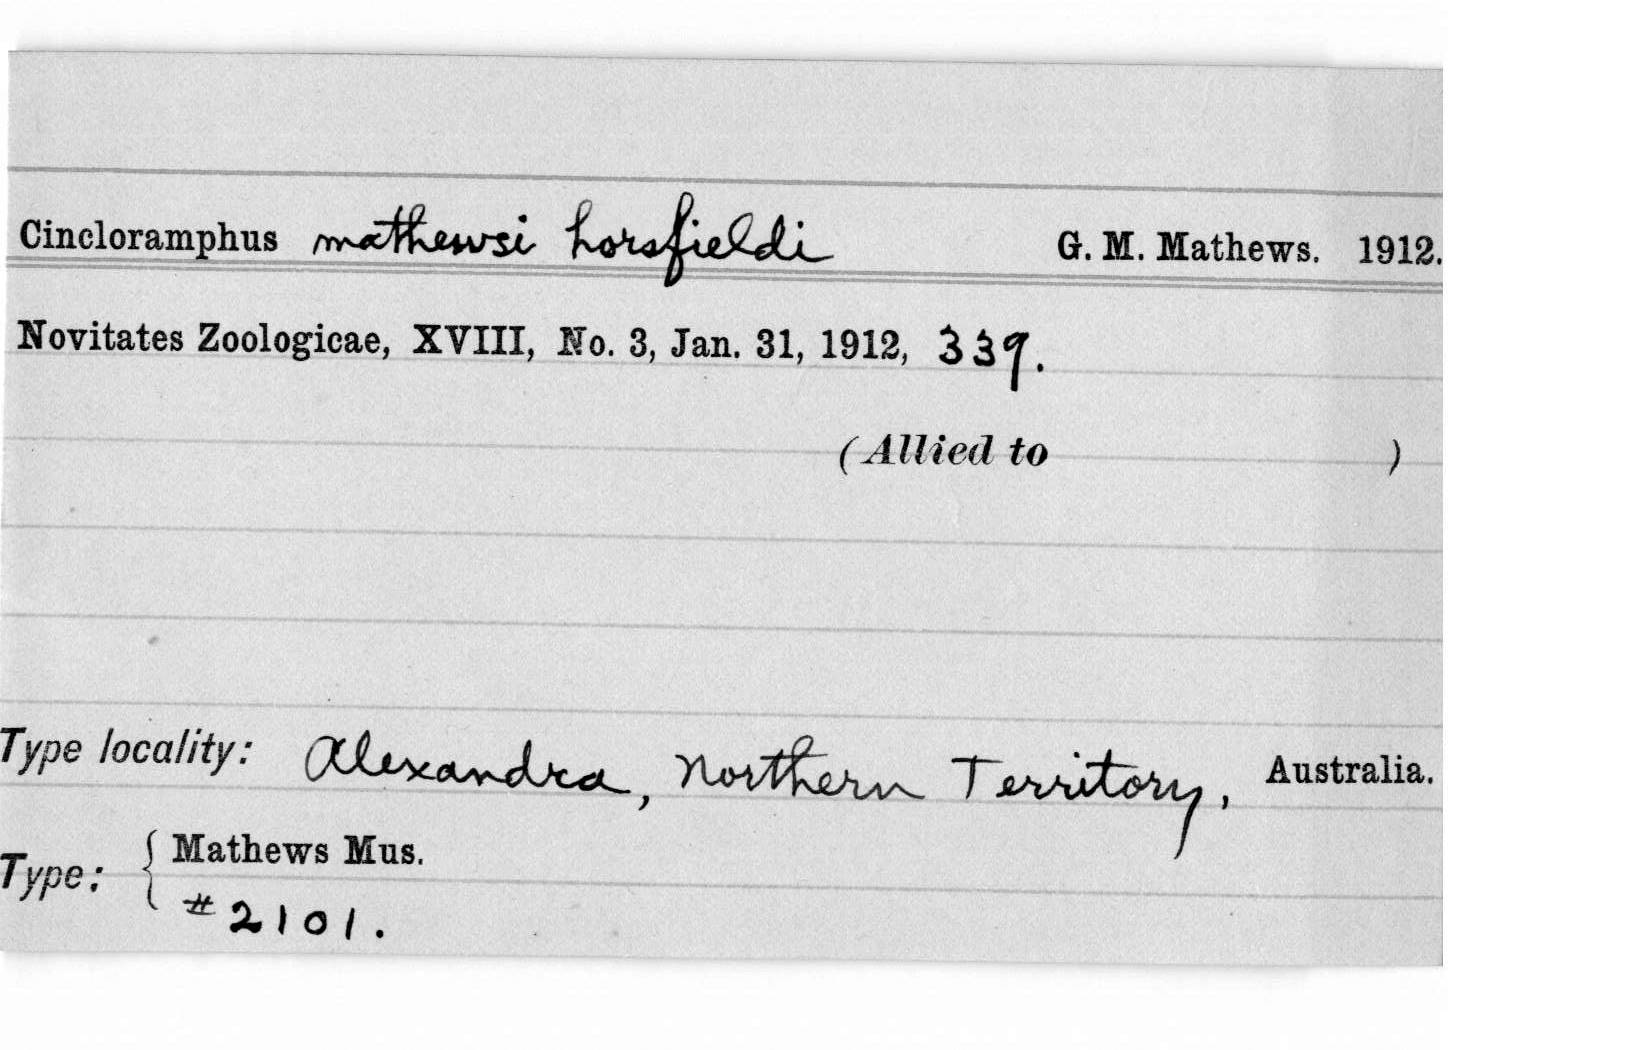 Cincloramphus mathewsi horsfieldi G. M. Mathews. 1912.
Novitates Zoologicae, XVIII, No. 3, Jan. 31, 1912, 339.
(Allied to )
Type locality: Alexandra, Northern Territory, Australia.
Type: { Mathews Mus.
#2101.